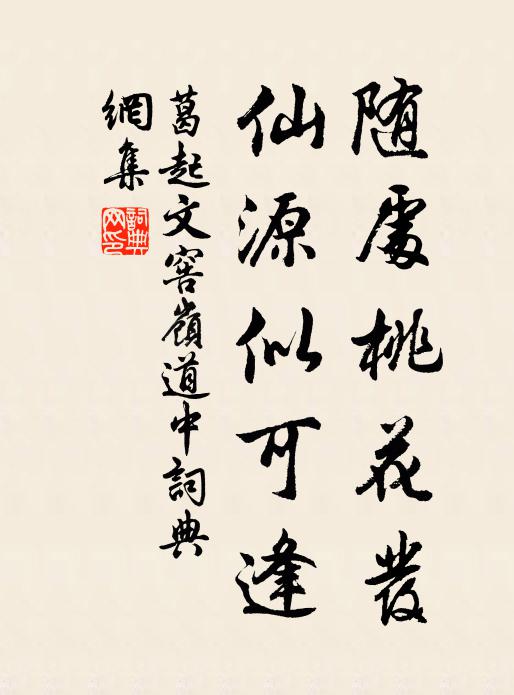 随處桃花發
仙源似可逢
葛起文窖嶺道中詞典
網集
詞典網印